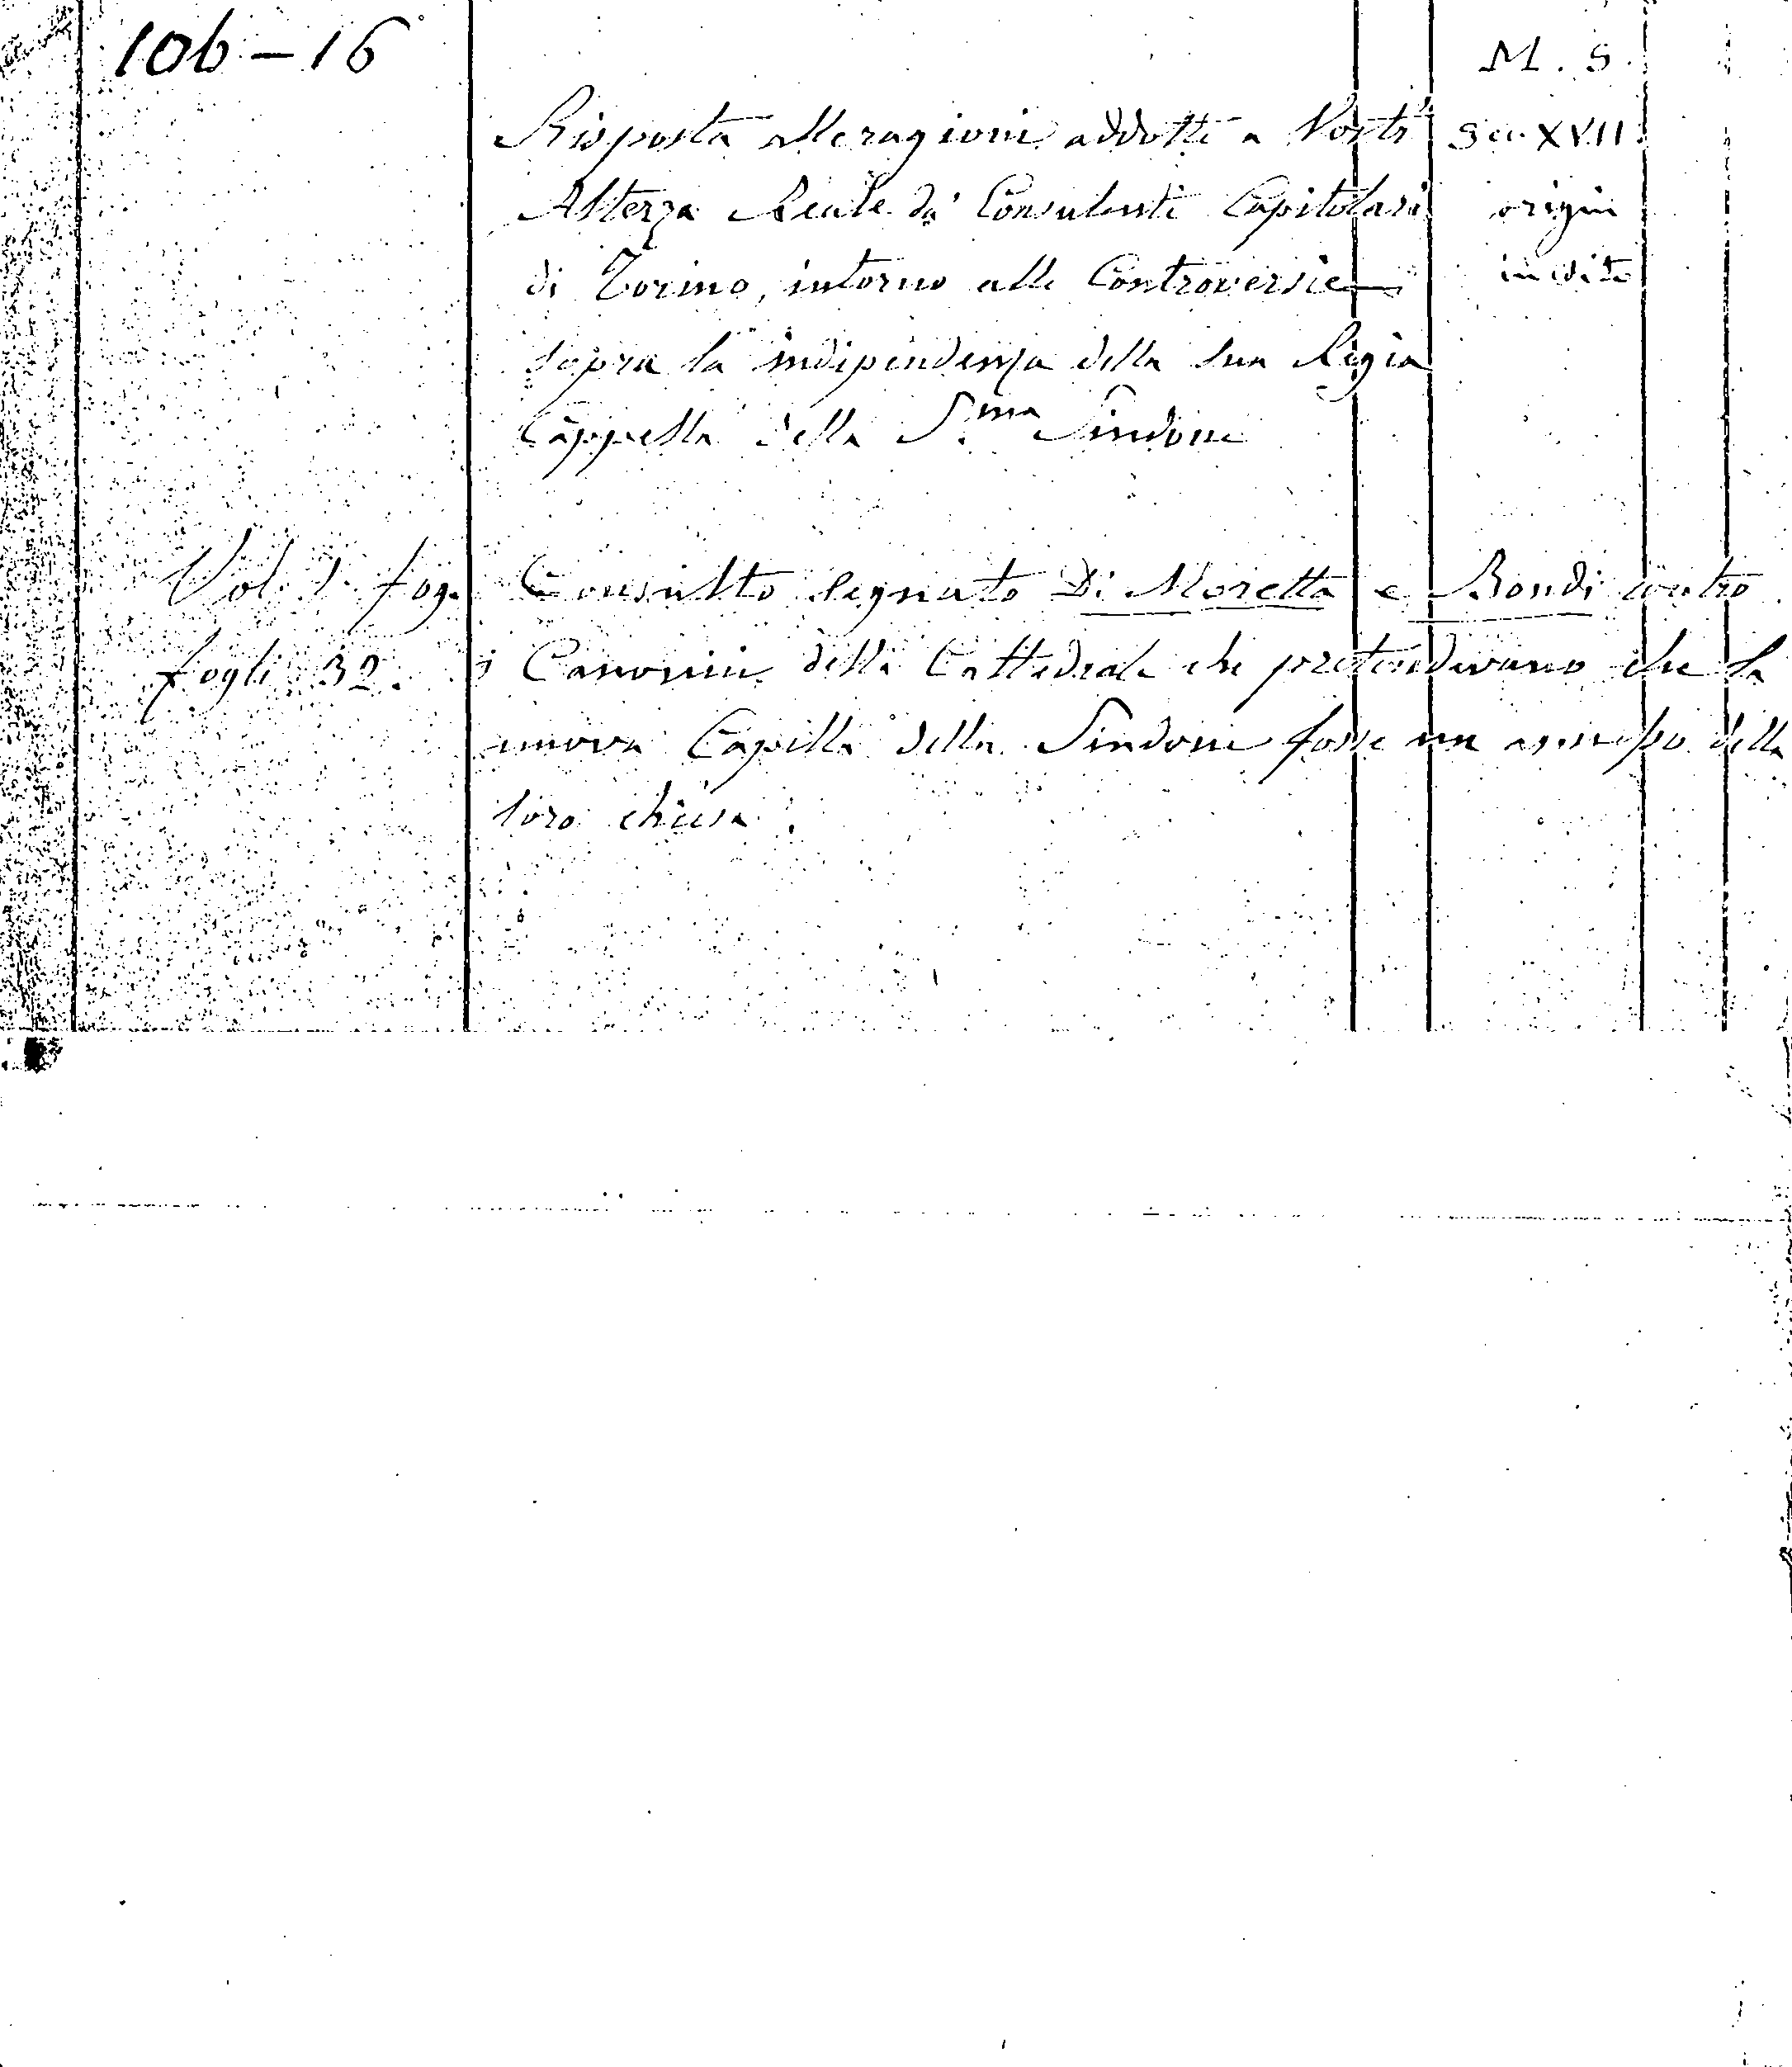 106-16
M. S.
Risposta alle ragioni addotte a Vostr
Sec. XVII
Altezza Reale da' Consulenti Capitolari
origin
di Torino, intorno alle Controversie
inedito
sopra la indipendenza della sua Regia
Cappella della S.ma Sindone
Vol. 1. fog.
Consulto segnato Di Moretta e Bondi contro
fogli 32.
i Canonici della Cattedrale che pretendevano che la
nuova Capella della Sindone fosse un annesso della
loro chiesa.